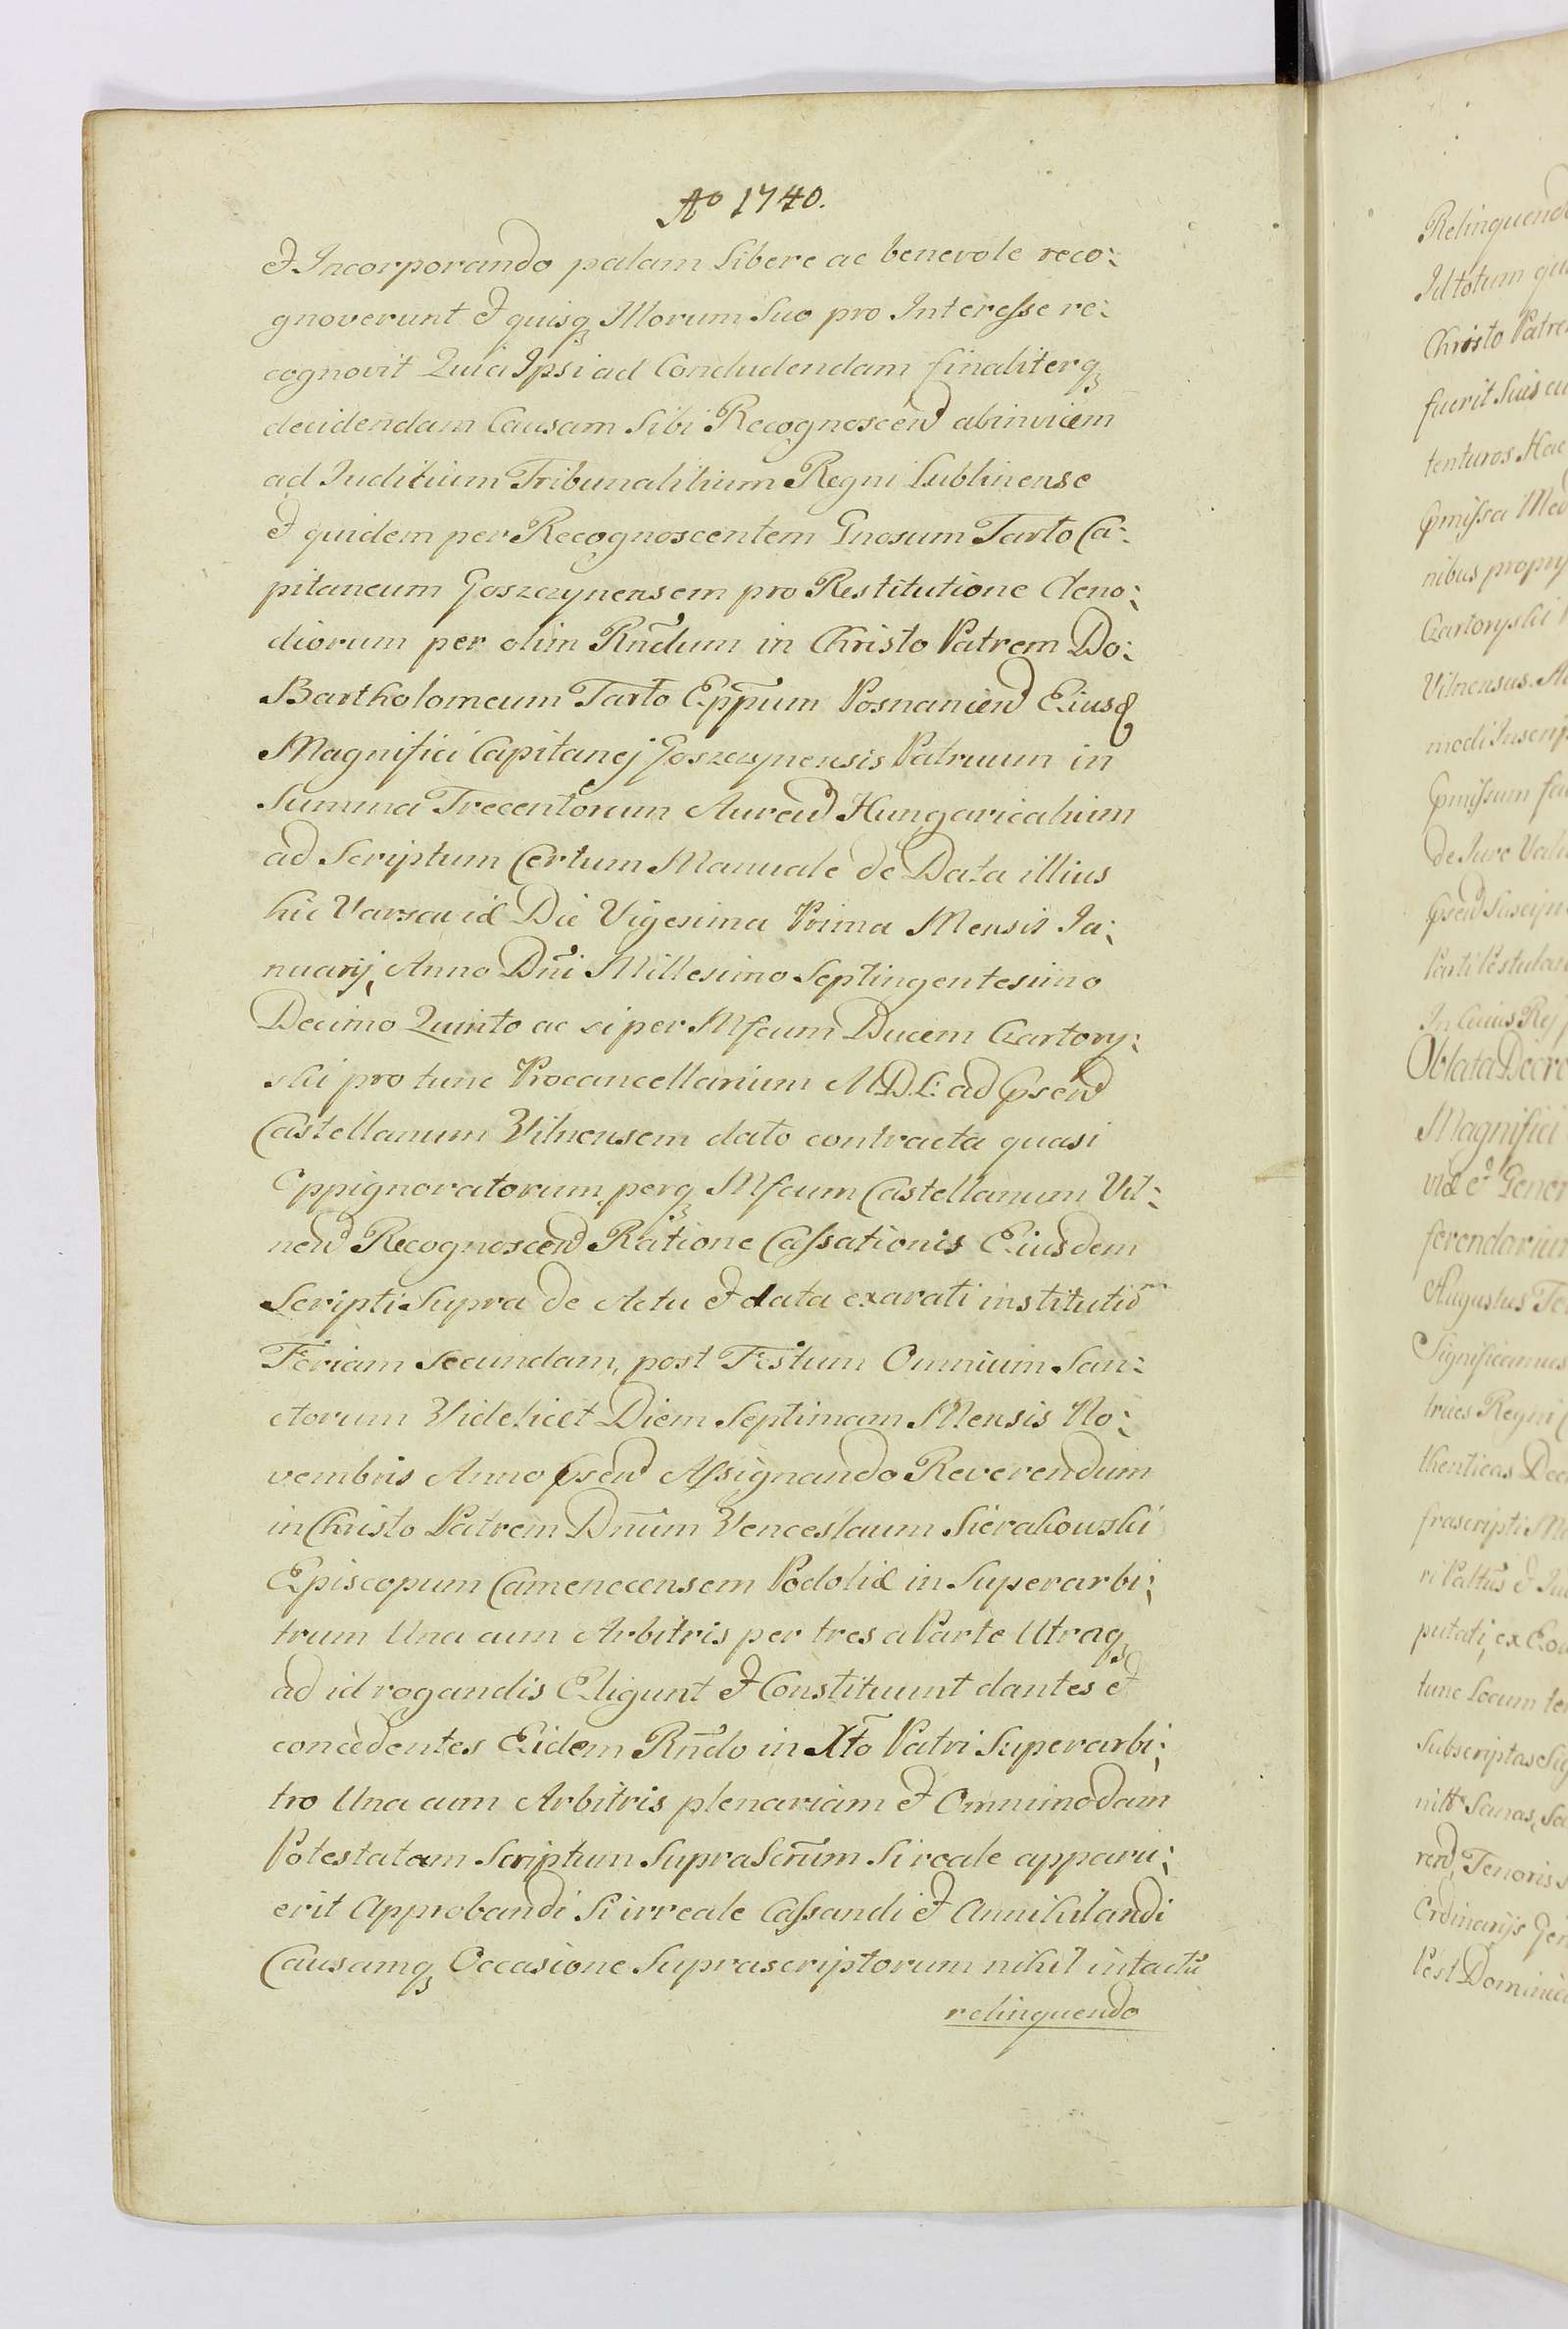 Ao 1740.
& Incorporando palam libere ac benevole reco:
gnoverunt & quisq3 Illorum Suo pro Interesse re:
cognovit Quia Ipsi ad Concludendam finaliterq3
decidendam Causam Sibi Recognoscen̄ abinvicem
ad Iuditium Tribunalitium Regni Lublinense
& quidem per Recognoscentem Gnosum Tarło Ca:
pitaneum Goszczynensem pro Restitutione Cleno:
diorum per olim Rñdum in Christo Patrem Do:
Bartholomeum Tarło Epp̄um Posnanien̄ Eiusq
Magnifici Capitanej Goszczynensis Patruum in
Summa Trecentorum Aureor̄ Hungaricalium
ad Scriptum Certum Manuale de Data illius
hic Varsaviæ Die Vigesima Prima Mensis Ja:
nuarij, Anno Dñi Millesimo Septingentesimo
Decimo Quinto ac si per Mfcum Ducem Czartory:
ski pro tunc Procancellarium M.D.L: ad Psen̄
Castellanum Vilnensem dato contracta quasi
Oppignoratorum, perq3 Mfcum Castellanum Vil:
nen̄ Recognoscen̄ Ratione Cassationis Eiusdem
Scripti Supra de Actu & data exarati institutiom
Feriam Secundam, post Festum Omnium San:
ctorum Videlicet Diem Septimam Mensis No:
vembris Anno Psen̄ Assignando Reverendum
in Christo Patrem Dnūm Venceslaum Sierakowski
Episcopum Camenecensem Podoliæ in Superarbi:
trum Una cum Arbitris per tres a Parte Utraq3
ad id rogandis Eligunt & Constituunt dantes &
concedentes Eidem Rñdo in Xto Patri Superarbi:
tro Una cum Arbitris plenariam & Omnimodam
Potestatam Scriptum Supra Scr̄um Si reale apparu:
erit Approbandi Si irreale Cassandi & Annihilandi
Causamq3 Occasione Suprascriptorum nihil intactū
relinquendo
Relinquend
Id totum qu
Christo Patre
fuerit Suis cu
tenturos Hac
nibus propry
Czartoryski
Vilnensus.
modi Inscrip
de Jure Vali
Parti Postulan
In Cuius Rej
Oblata Decre
Magnifici
viæ & Gener
ferendarium
Augustus Ter
Significamus
trices Regni
thenticas Dec
frascripti Ma
putati, ex Eo
tunc Locum te
Subscriptas Sig
Tenoris
Ordinarijs Gen
Post Dominic